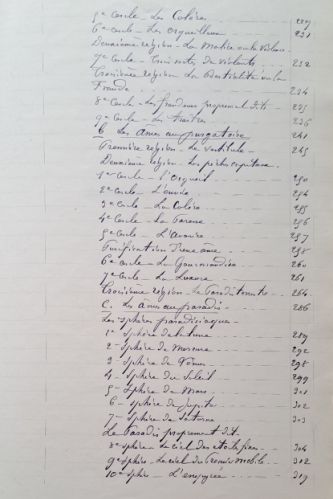 5e Cercle - Les Colères 229
6e Cercle - Les orgueilleux 231
Deuxième région - La Malice ou la Violence
7e Cercle - Trois sortes de violents 232
Troisième région - La Bestialité ou la
Fraude 234
8e Cercle - Les fraudeurs proprement dits 235
9e Cercle - Les traîtres 236
B. Les Ames au purgatoire 241
Première région - Le vestibule 245
Deuxième région - Les péchés capitaux
1er Cercle - l'Orgueil 250
2e Cercle - L'envie 254
3e Cercle - La Colère 255
4e Cercle - La Paresse 256
5e Cercle - L'Avarice 257
Purification 258
6e Cercle - La Gourmandise 260
7e Cercle - La Luxure 261
Troisième région - Le Paradis terrestre 264
C. Les Ames au paradis 286
Les sphères paradisiaques
1e Sphère de la lune 289
2 - Sphère de Mercure 292
3 Sphère de Vénus 298
4 - Sphère du Soleil 299
5 - Sphère de Mars 301
6 - Sphère de Jupiter 302
7 - Sphère de Saturne 303
Le Paradis proprement dit
8e sphère - Le ciel des étoiles fixes 304
9e Sphère - Le ciel du Premier mobile 312
10e Sphère - L'empyrée 319